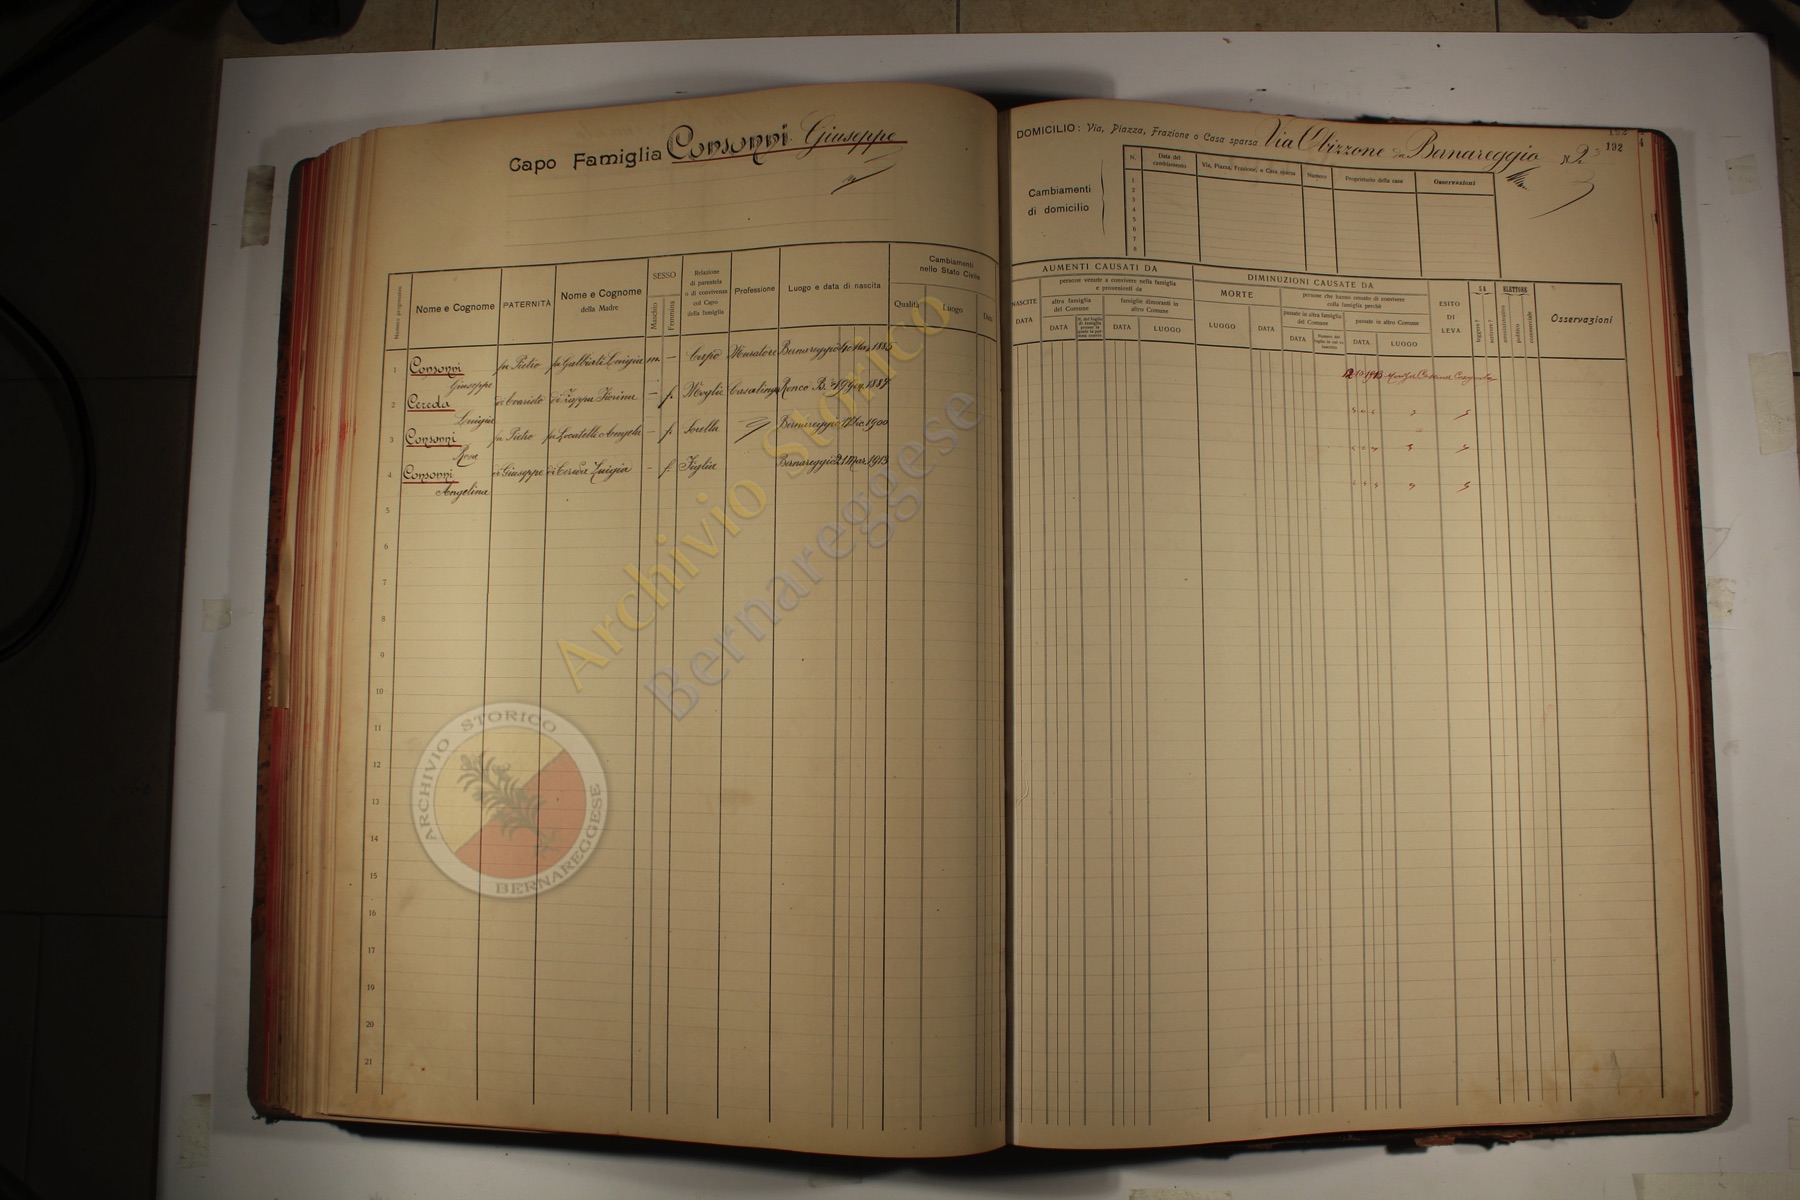 Capo Famiglia Consonni Giuseppe
Numero progressivo
Nome e Cognome
PATERNITÀ
Nome e Cognome
della Madre
SESSO
Maschio
Femmina
Relazione
di parentela
o di convivenza
col Capo
della famiglia
Professione
Luogo e data di nascita
Cambiamenti
nello Stato Civile
Qualità
Luogo
Data
1 Consonni fu Pietro fu Galbiati Luigia m. — Capo Muratore Bernareggio Mar. 1885
Giuseppe
2 Cereda di Evaristo di Fiorina — f. Moglie Casalinga Ronco B. 19 Gen. 1889
Luigia
3 Consonni fu Pietro fu Locatelli Angela — f. Sorella Bernareggio Dic. 1900
Rosa
4 Consonni di Giuseppe di Cereda Luigia — f. Figlia Bernareggio 21 Mar. 1913
Angelina
5
6
7
8
9
10
11
12
13
14
15
16
17
18
19
20
21
DOMICILIO: Via, Piazza, Frazione o Casa sparsa Via Obizzone da Bernareggio N. 23
192
192
Cambiamenti
di domicilio
N.
Data del
cambiamento
Via, Piazza, Frazione, o Casa sparsa
Numero
Proprietario della casa
Osservazioni
1
2
3
4
5
6
7
8
AUMENTI CAUSATI DA
NASCITE
DATA
persone venute a convivere nella famiglia
e provenienti da
altra famiglia
del Comune
DATA
famiglie dimoranti in
altro Comune
DATA
LUOGO
DIMINUZIONI CAUSATE DA
MORTE
LUOGO
DATA
persone che hanno cessato di convivere
colla famiglia perchè
passate in altra famiglia
del Comune
DATA
passate in altro Comune
DATA
LUOGO
ESITO
DI
LEVA
SA
leggere?
scrivere?
ELETTORE
amministrativo
politico
commerciale
Osservazioni
1913
Archivio Storico
Bernareggese
ARCHIVIO STORICO
BERNAREGGESE